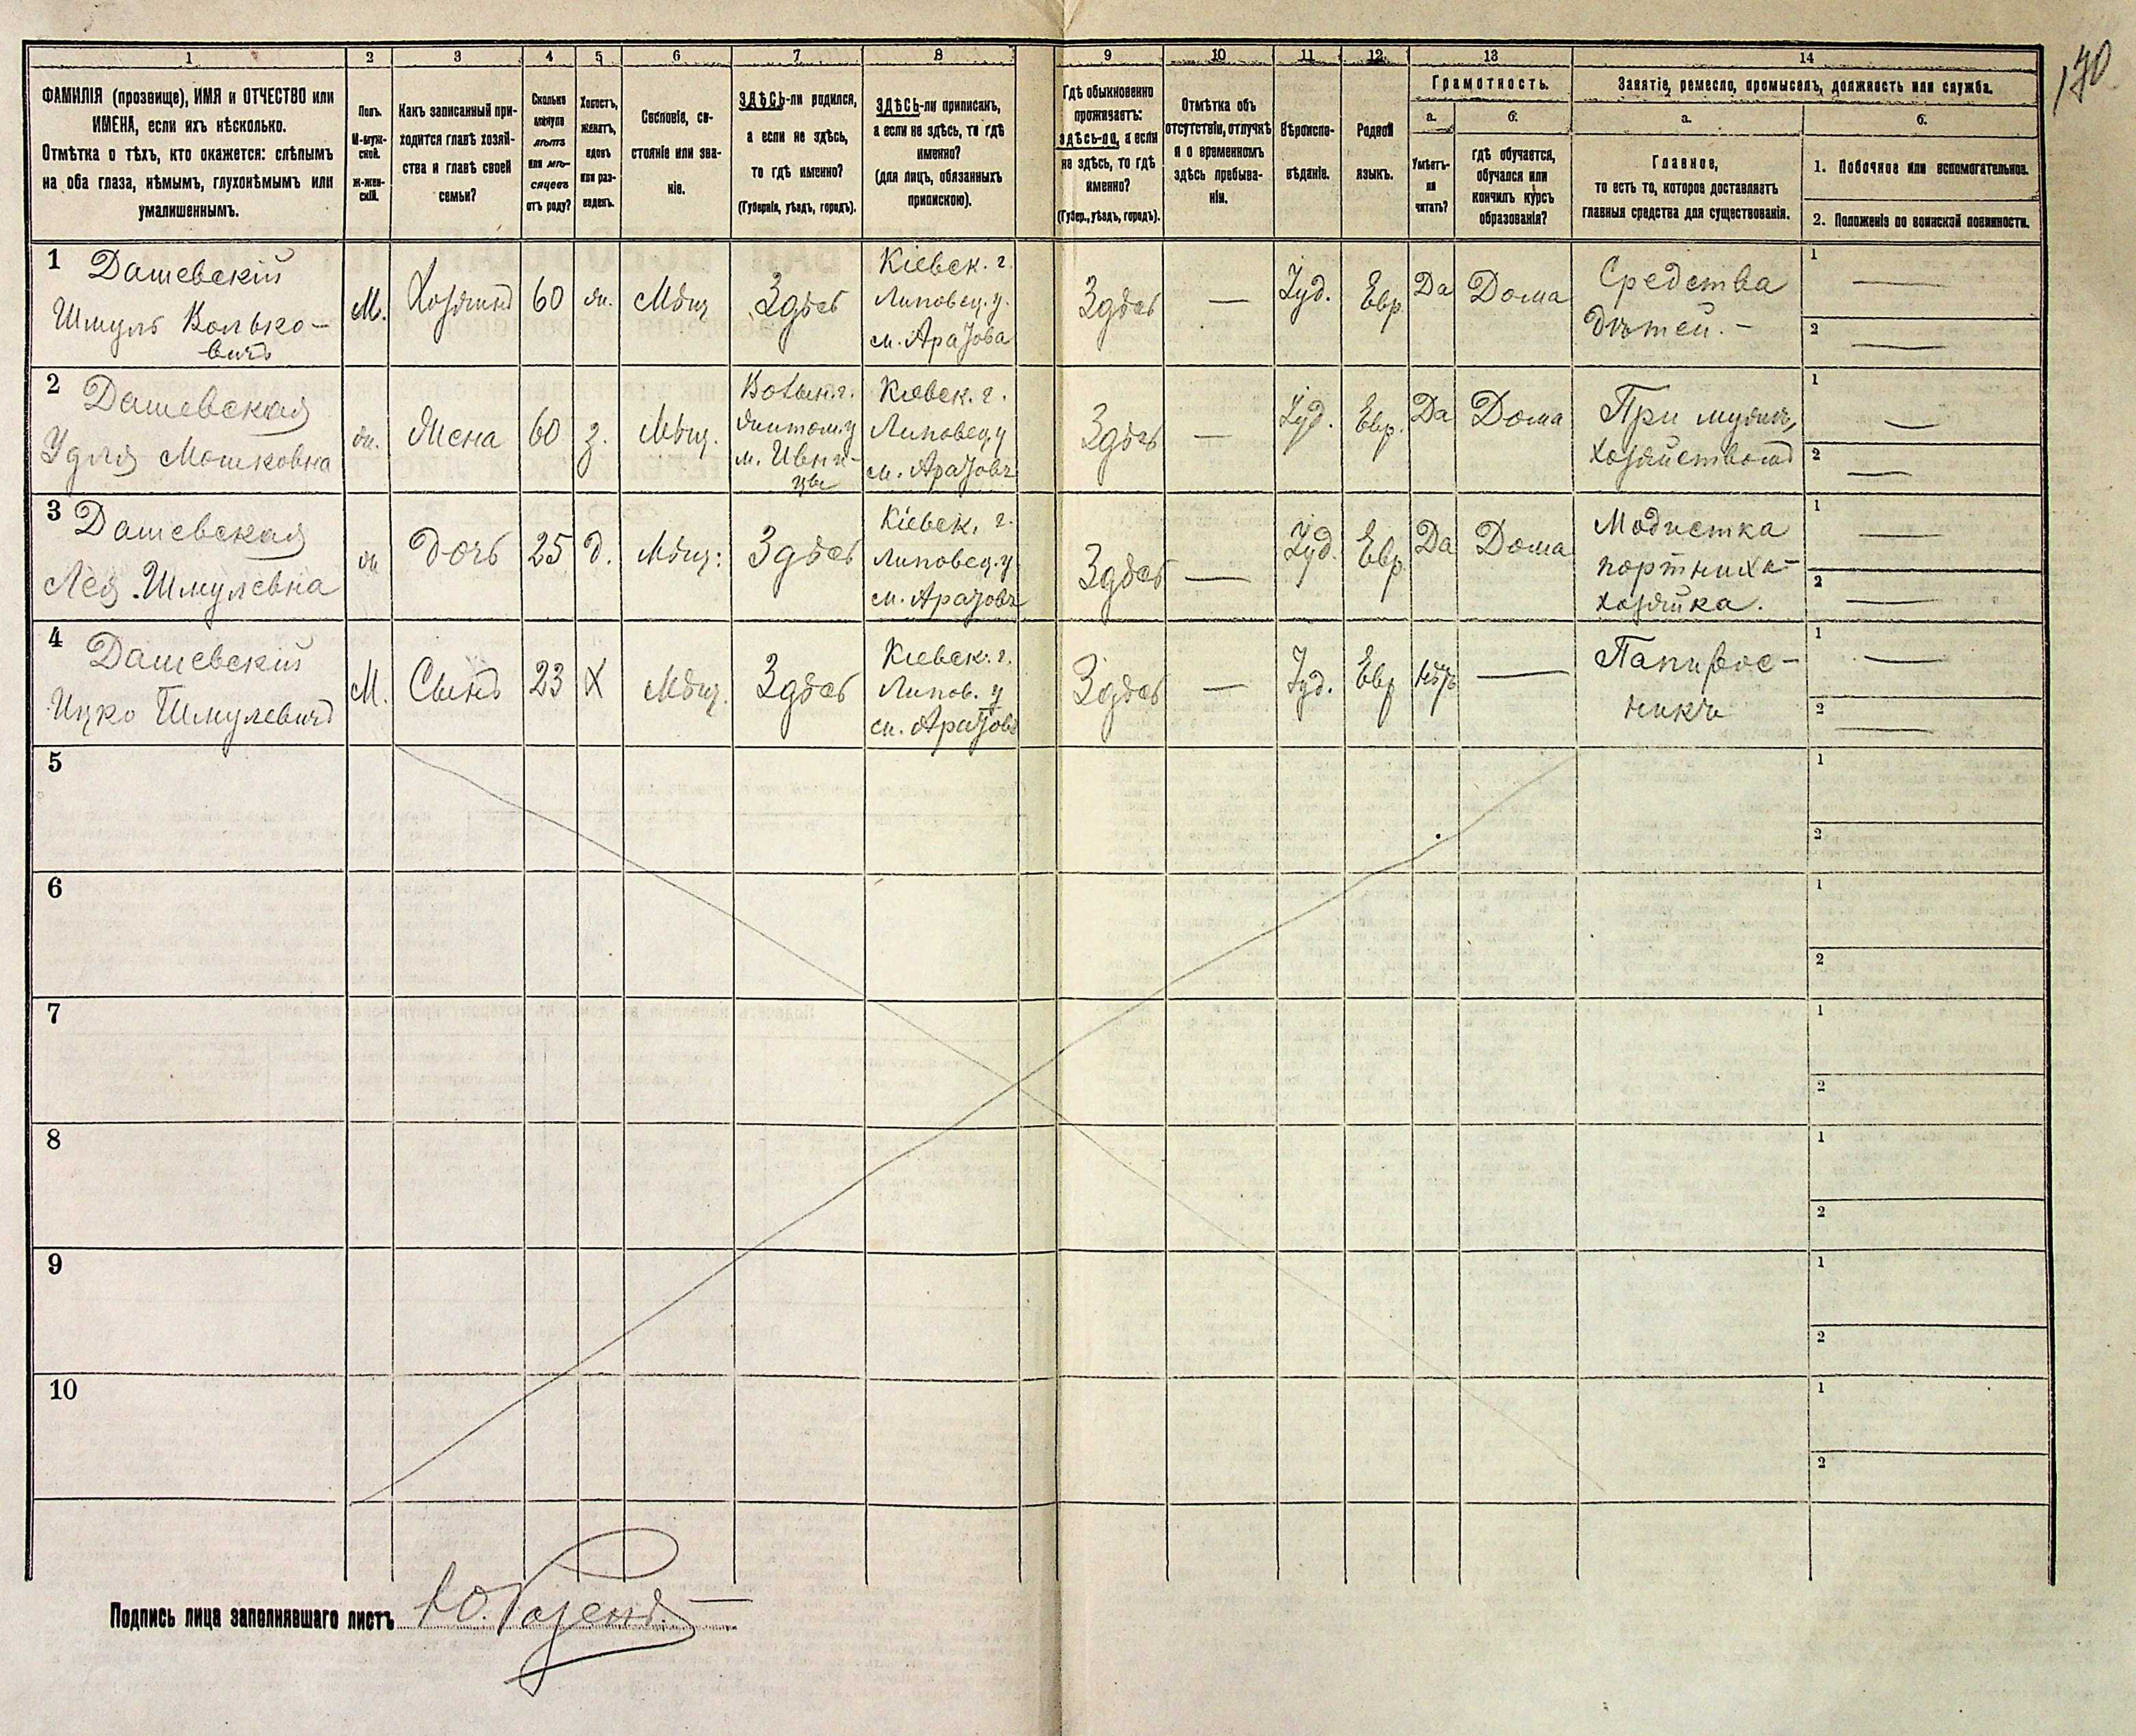 170
1 2 3 4 5 6 7 8 9 10 11 12 13 14
ФАМИЛІЯ (прозвище), ИМЯ и ОТЧЕСТВО или
ИМЕНА, если ихъ нѣсколько.
Отмѣтка о тѣхъ, кто окажется: слѣпымъ
на оба глаза, нѣмымъ, глухонѣмымъ или
умалишеннымъ.
Полъ.
М-муж-
ской.
ж-жен-
скій.
Какъ записанный при-
ходится главѣ хозяй-
ства и главѣ своей
семьи?
Сколько
минуло
лѣтъ
или мѣ-
сяцевъ
отъ роду?
Холостъ,
женатъ,
вдовъ
или раз-
веденъ.
Сословіе, со-
стояніе или зва-
ніе.
ЗДѢСЬ-ли родился,
а если не здѣсь,
то гдѣ именно?
(Губернія, уѣздъ, городъ).
ЗДѢСЬ-ли приписанъ,
а если не здѣсь, то гдѣ
именно?
(для лицъ, обязанныхъ
припискою).
Гдѣ обыкновенно
проживаетъ:
здѣсь-ли, а если
не здѣсь, то гдѣ
именно?
(Губер., уѣздъ, городъ).
Отмѣтка объ
отсутствіи, отлучкѣ
и о временномъ
здѣсь пребыва-
ніи.
Вѣроиспо-
вѣданіе.
Родной
языкъ.
Грамотность.
а.
Умѣетъ-
ли
читать?
б.
гдѣ обучается,
обучался или
кончилъ курсъ
образованія?
Занятіе, ремесло, промыселъ, должность или служба.
а.
Главное,
то есть то, которое доставляетъ
главныя средства для существованія.
б.
1. Побочное или вспомогательное.
2. Положеніе по воинской повинности.
1 Дашевскій
Шмуль Волько-
вичъ
М.
Хозяинъ
60
жн.
Мѣщ
Здѣсь
Кіевск. г.
Липовец. у.
Здѣсь
—
Іуд.
Евр
Да
Дома
Средства
дѣтей. -
1 —
2 —
2 Дашевская
Удля Мошковна
жн.
Жена
60
з.
Мѣщ.
Волын. г.
Житом. у
м. Ивни-
цы
Кіевск. г.
Липовец. у
Здѣсь
—
Іуд.
Евр.
Да
Дома
При мужѣ,
хозяйствомъ
1 —
2 —
3 Дашевская
Лея Шмулевна
жн
Дочь
25
д.
Мѣщ.
Здѣсь
Кіевск. г.
Липовец. у
Здѣсь
—
Іуд.
Евр
Да
Дома
Модистка
портниха-
хозяйка.
1 —
2 —
4 Дашевскій
Ицко Шмулевичъ
М.
Сынъ
23
Х
Мѣщ.
Здѣсь
Кіевск. г.
Липов. у
Здѣсь
—
Іуд.
Евр
Нѣтъ
—
Папирос-
никъ
1 —
2 —
5
1
2
6
1
2
7
1
2
8
1
2
9
1
2
10
1
2
Подпись лица заполнявшаго листъ